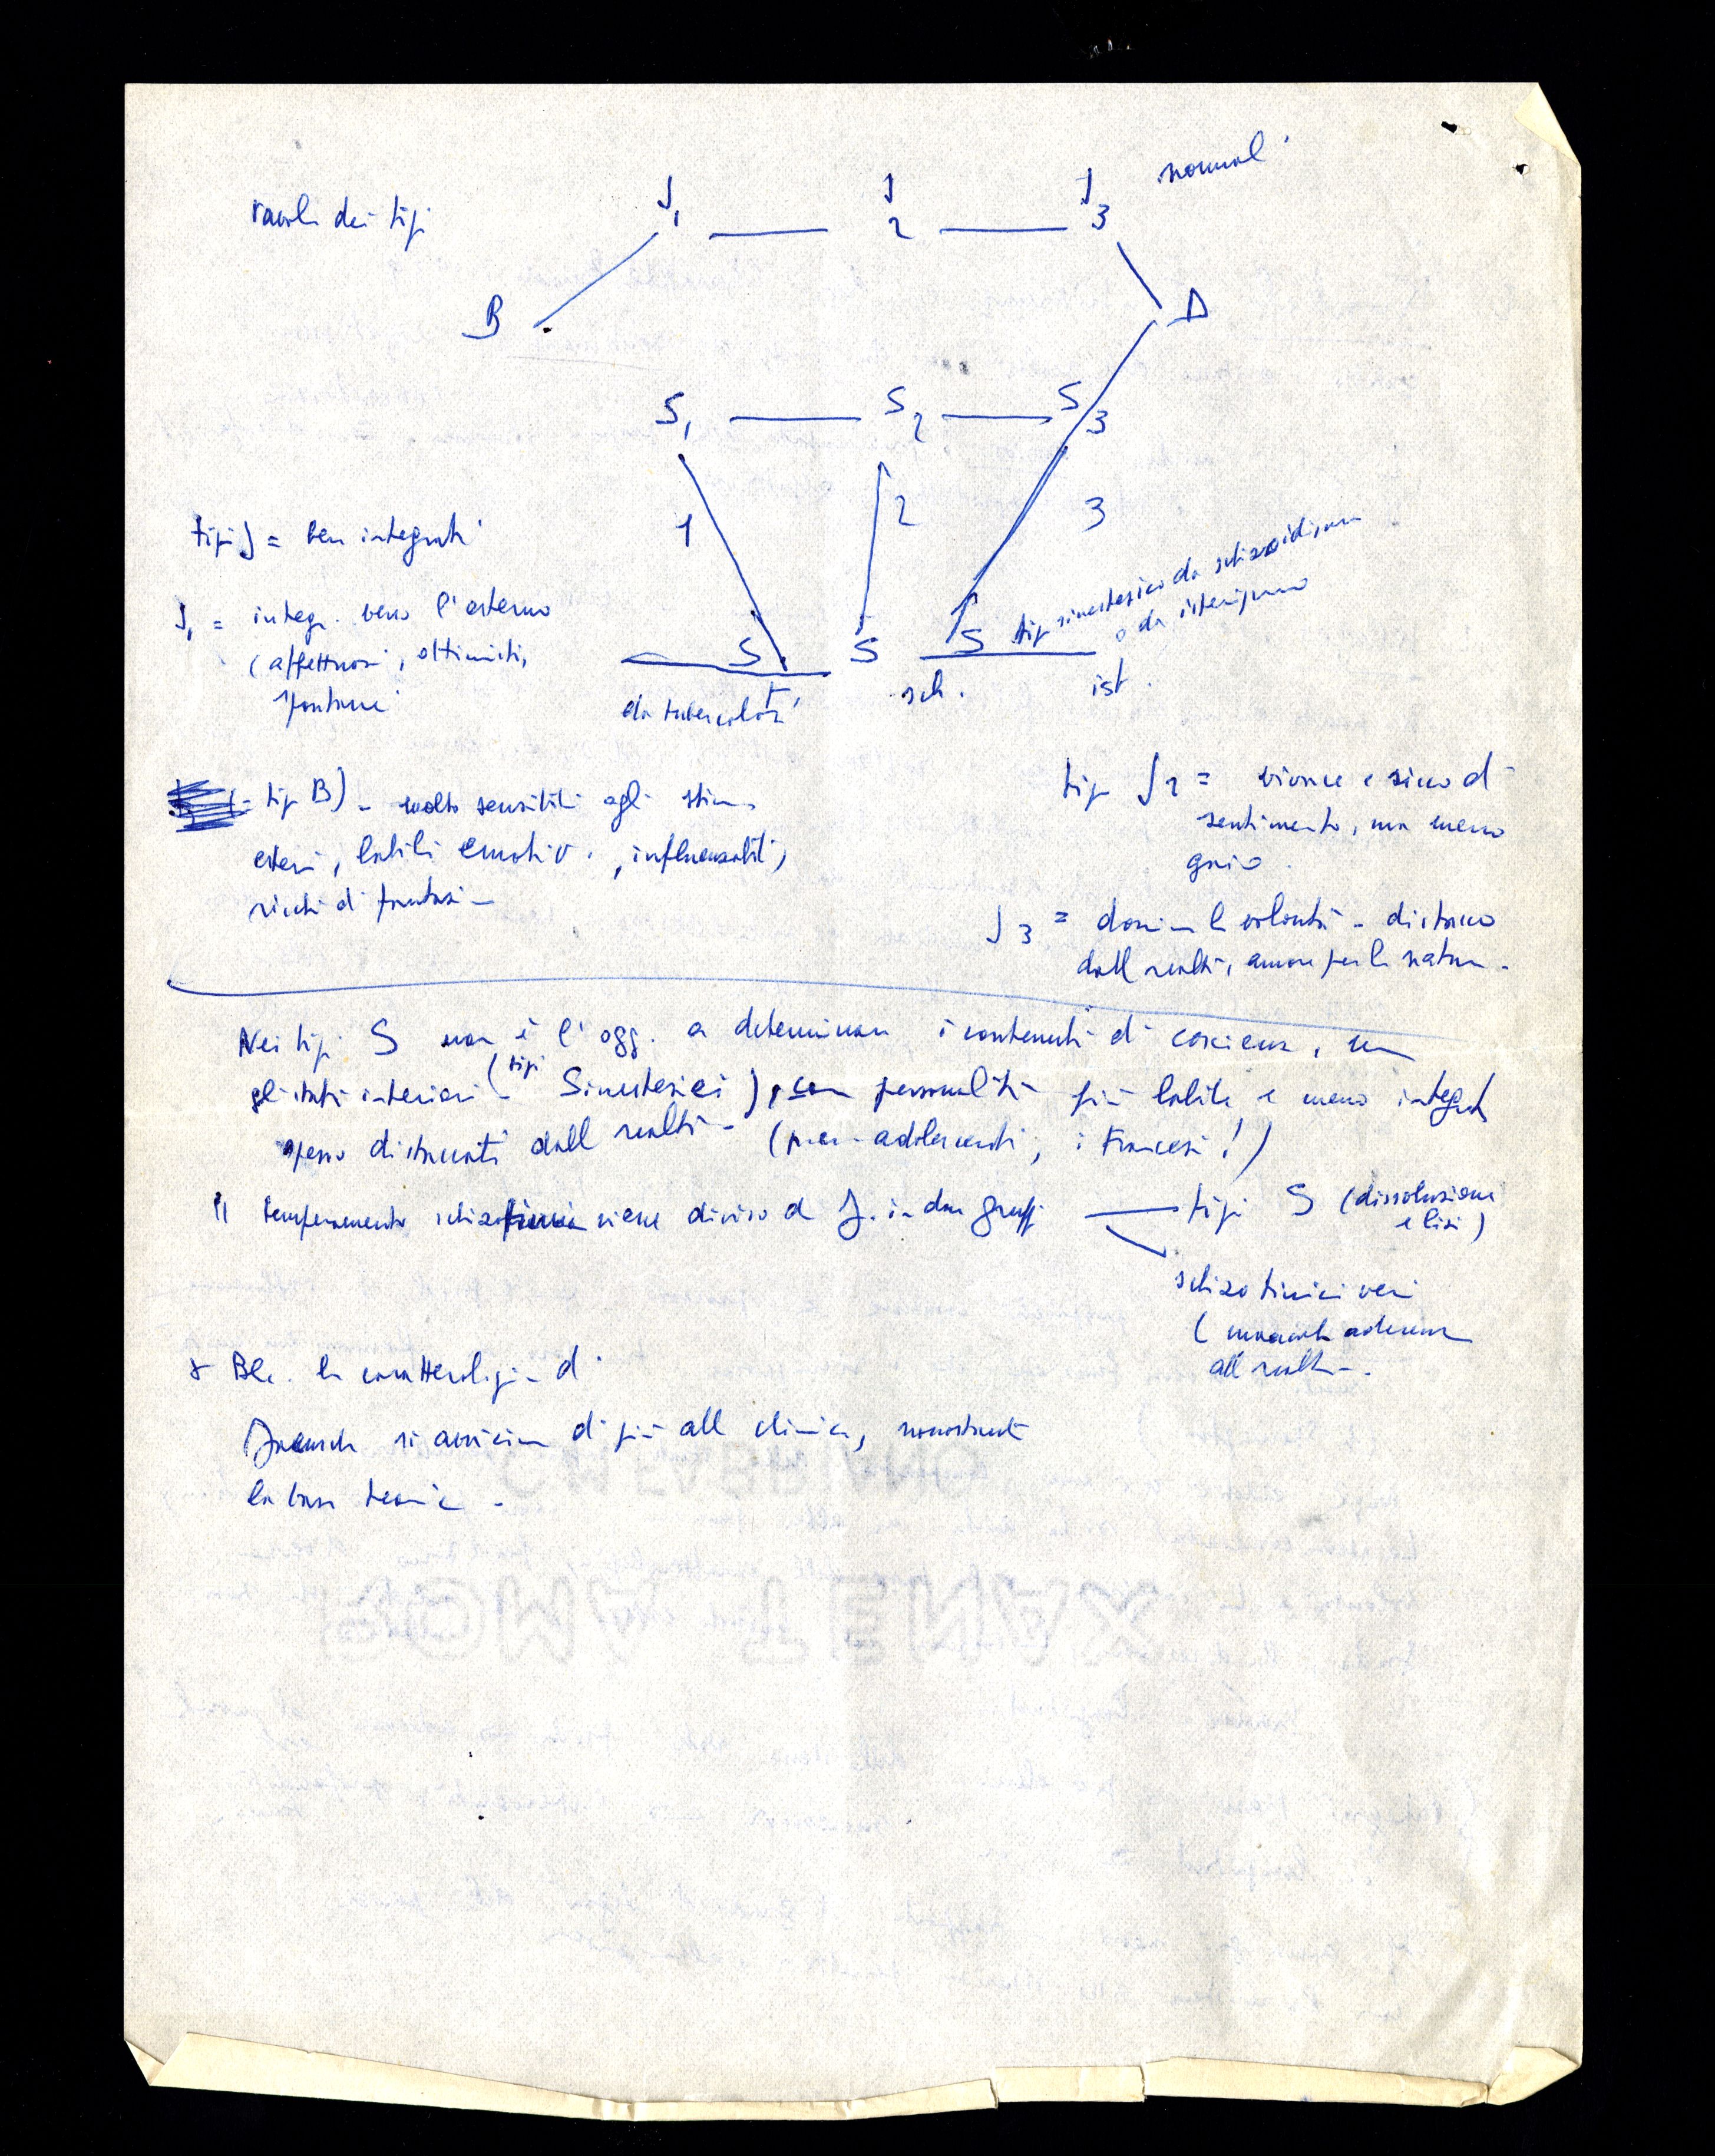 tavola dei tipi
J1 — J2 — J3 normali
B
D
S1 — S2 — S3
1 2 3
tipi J = ben integrati
J1 = integr. verso l'esterno
(affettuosi, ottimisti,
spontanei
tipo sinestesico da schizoidismo
o da isterismo
S S S
da tubercolosi
sch. ist.
tipo B) - molto sensibili agli stim.
esterni, labili emotiv., influenzabili,
ricchi di fantasia
tipo J2 = vivace e ricco di
sentimento, ma meno
gaio.
J3 = domina la volontà - distacco
dalla realtà, amore per la natura.
Nei tipi S non è l'ogg. a determinare i contenuti di coscienza, ma
gli stati interiori (tipi Sinestesici), con personalità più labile e meno integrata
spesso distaccati dalla realtà - (pre-adolescenti; i Francesi!)
Il temperamento schizotimico viene diviso da J. in due gruppi — tipi S (dissoluzione
e lisi)
schizotimici veri
( aderenza
alla realtà.
Ble. la caratterologia di
Jaensch si avvicina di più alla clinica, nonostante
la base teorica -
CMEVERIVNO
XANETAMOR